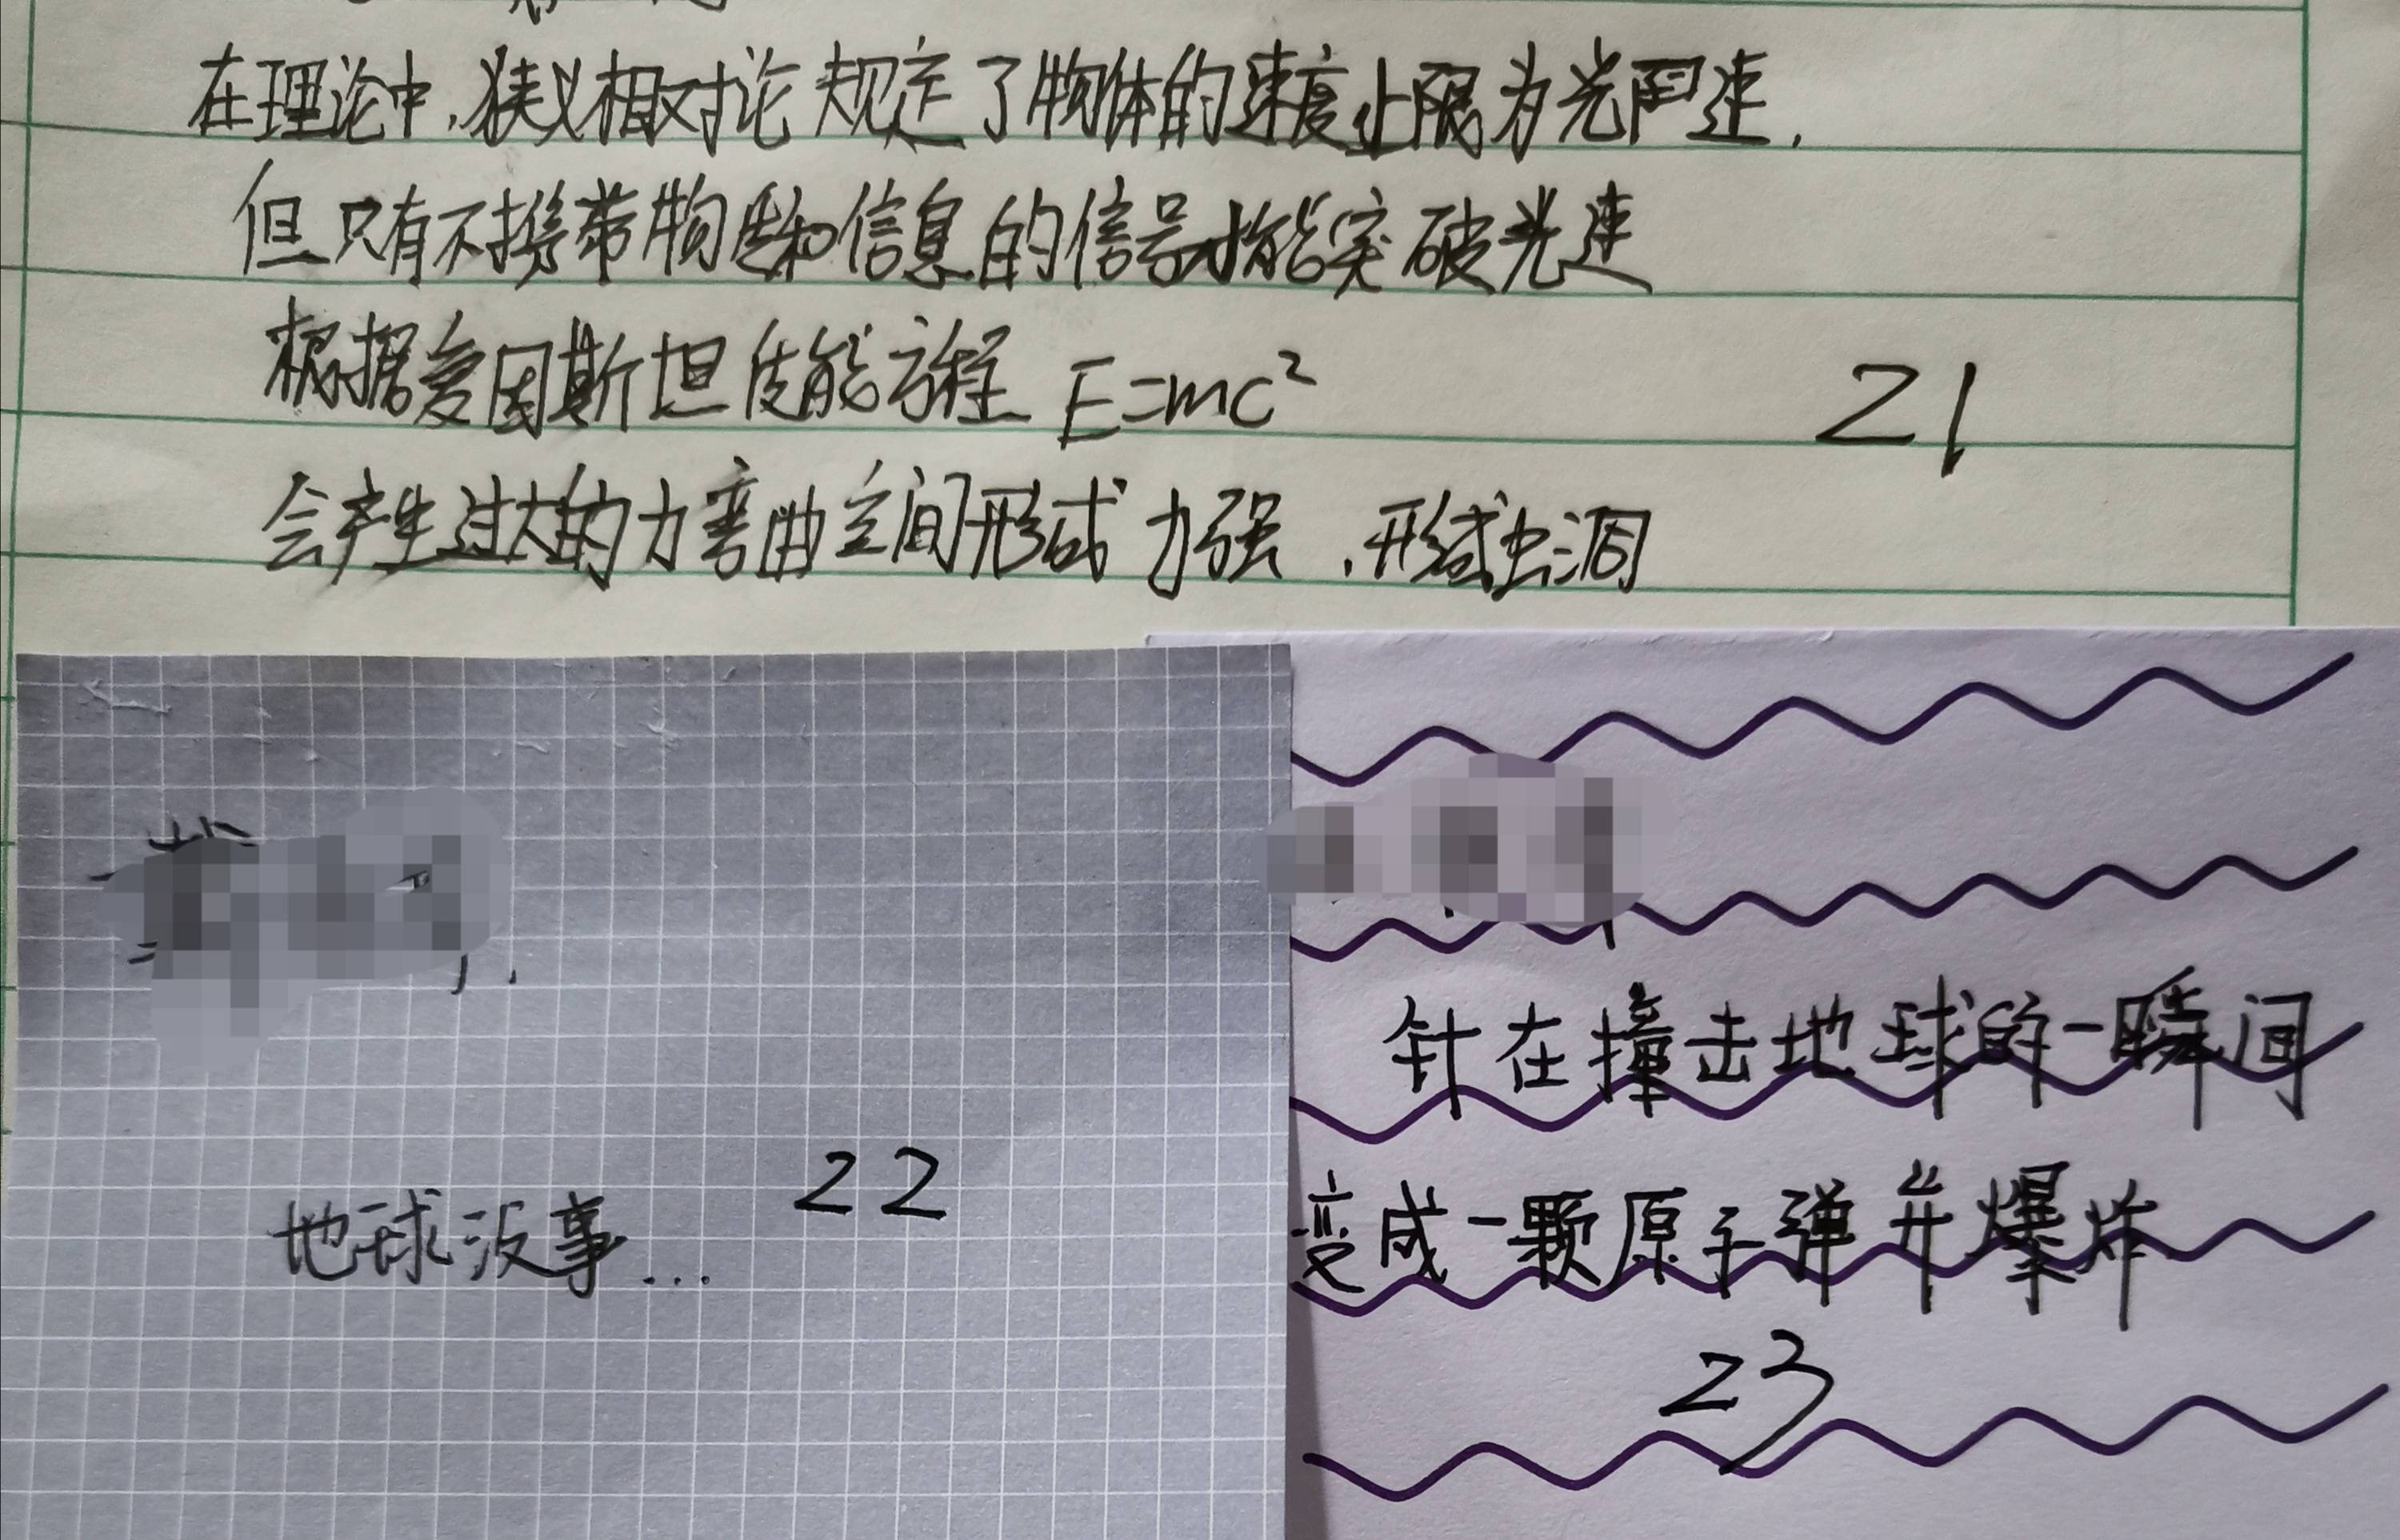 在理论中,狭义相对论规定了物体的速度上限为光速,
但只有不携带物质和信息的信号才能突破光速
根据爱因斯坦质能方程 E=mc²
21
会产生过大的力弯曲空间形成力强,形成虫洞
22
地球没事...
针在撞击地球的一瞬间
变成一颗原子弹并爆炸
23